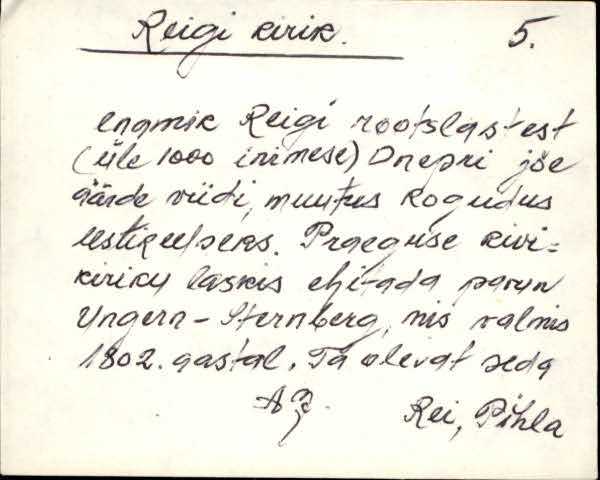 Reigi kirik. 5.
enamik Reigi rootslastest
(üle 1000 inimese) Dnepri jõe
äärde viidi, muutus kogudus
eestikeelseks. Praeguse kivi-
kiriku laskis ehitada parun
Ungern-Sternberg, mis valmis
1802. aastal. Ta olevat seda
Rei, Pihla